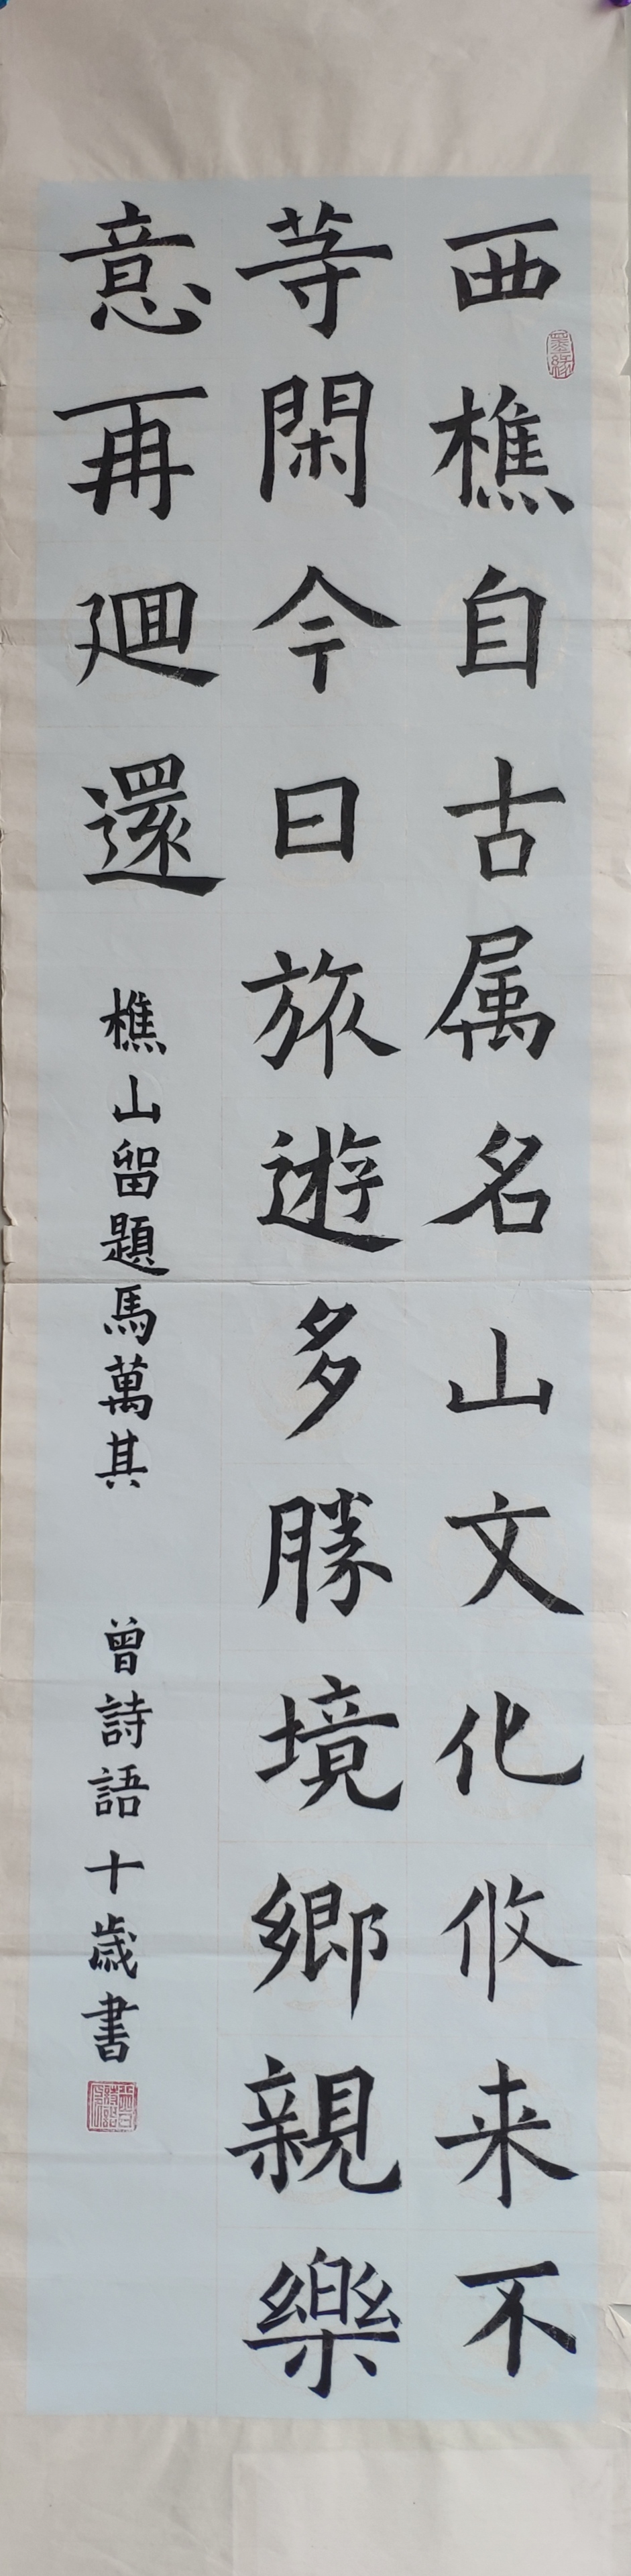 西樵自古属名山文化攸来不
等閑今日旅遊多勝境鄉親樂
意再廻還
樵山留題馬萬其
曾詩語十歲書
墨緣